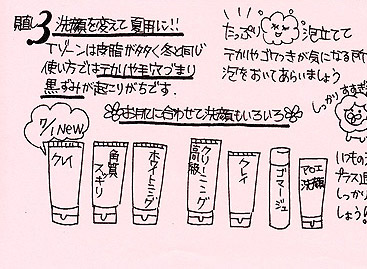 順3 洗顔を変えて夏用に!!
Tゾーンは皮脂が多く冬と同じ
使い方ではテカリや毛穴づまり
黒ずみが起こりがちです。
たっぷり泡立てて
テカリやザラつきが気になる所
泡をおいてあらいましょう
お肌に合わせて洗顔もいろいろ
しっかりすすぎ
7/1 NEW
クレイ
角質スッキリ
ホワイトニング
クリーニング高級
クレイ
ゴマージュ
アロエ洗顔
いつもの
プラス
しっかり
しょう!